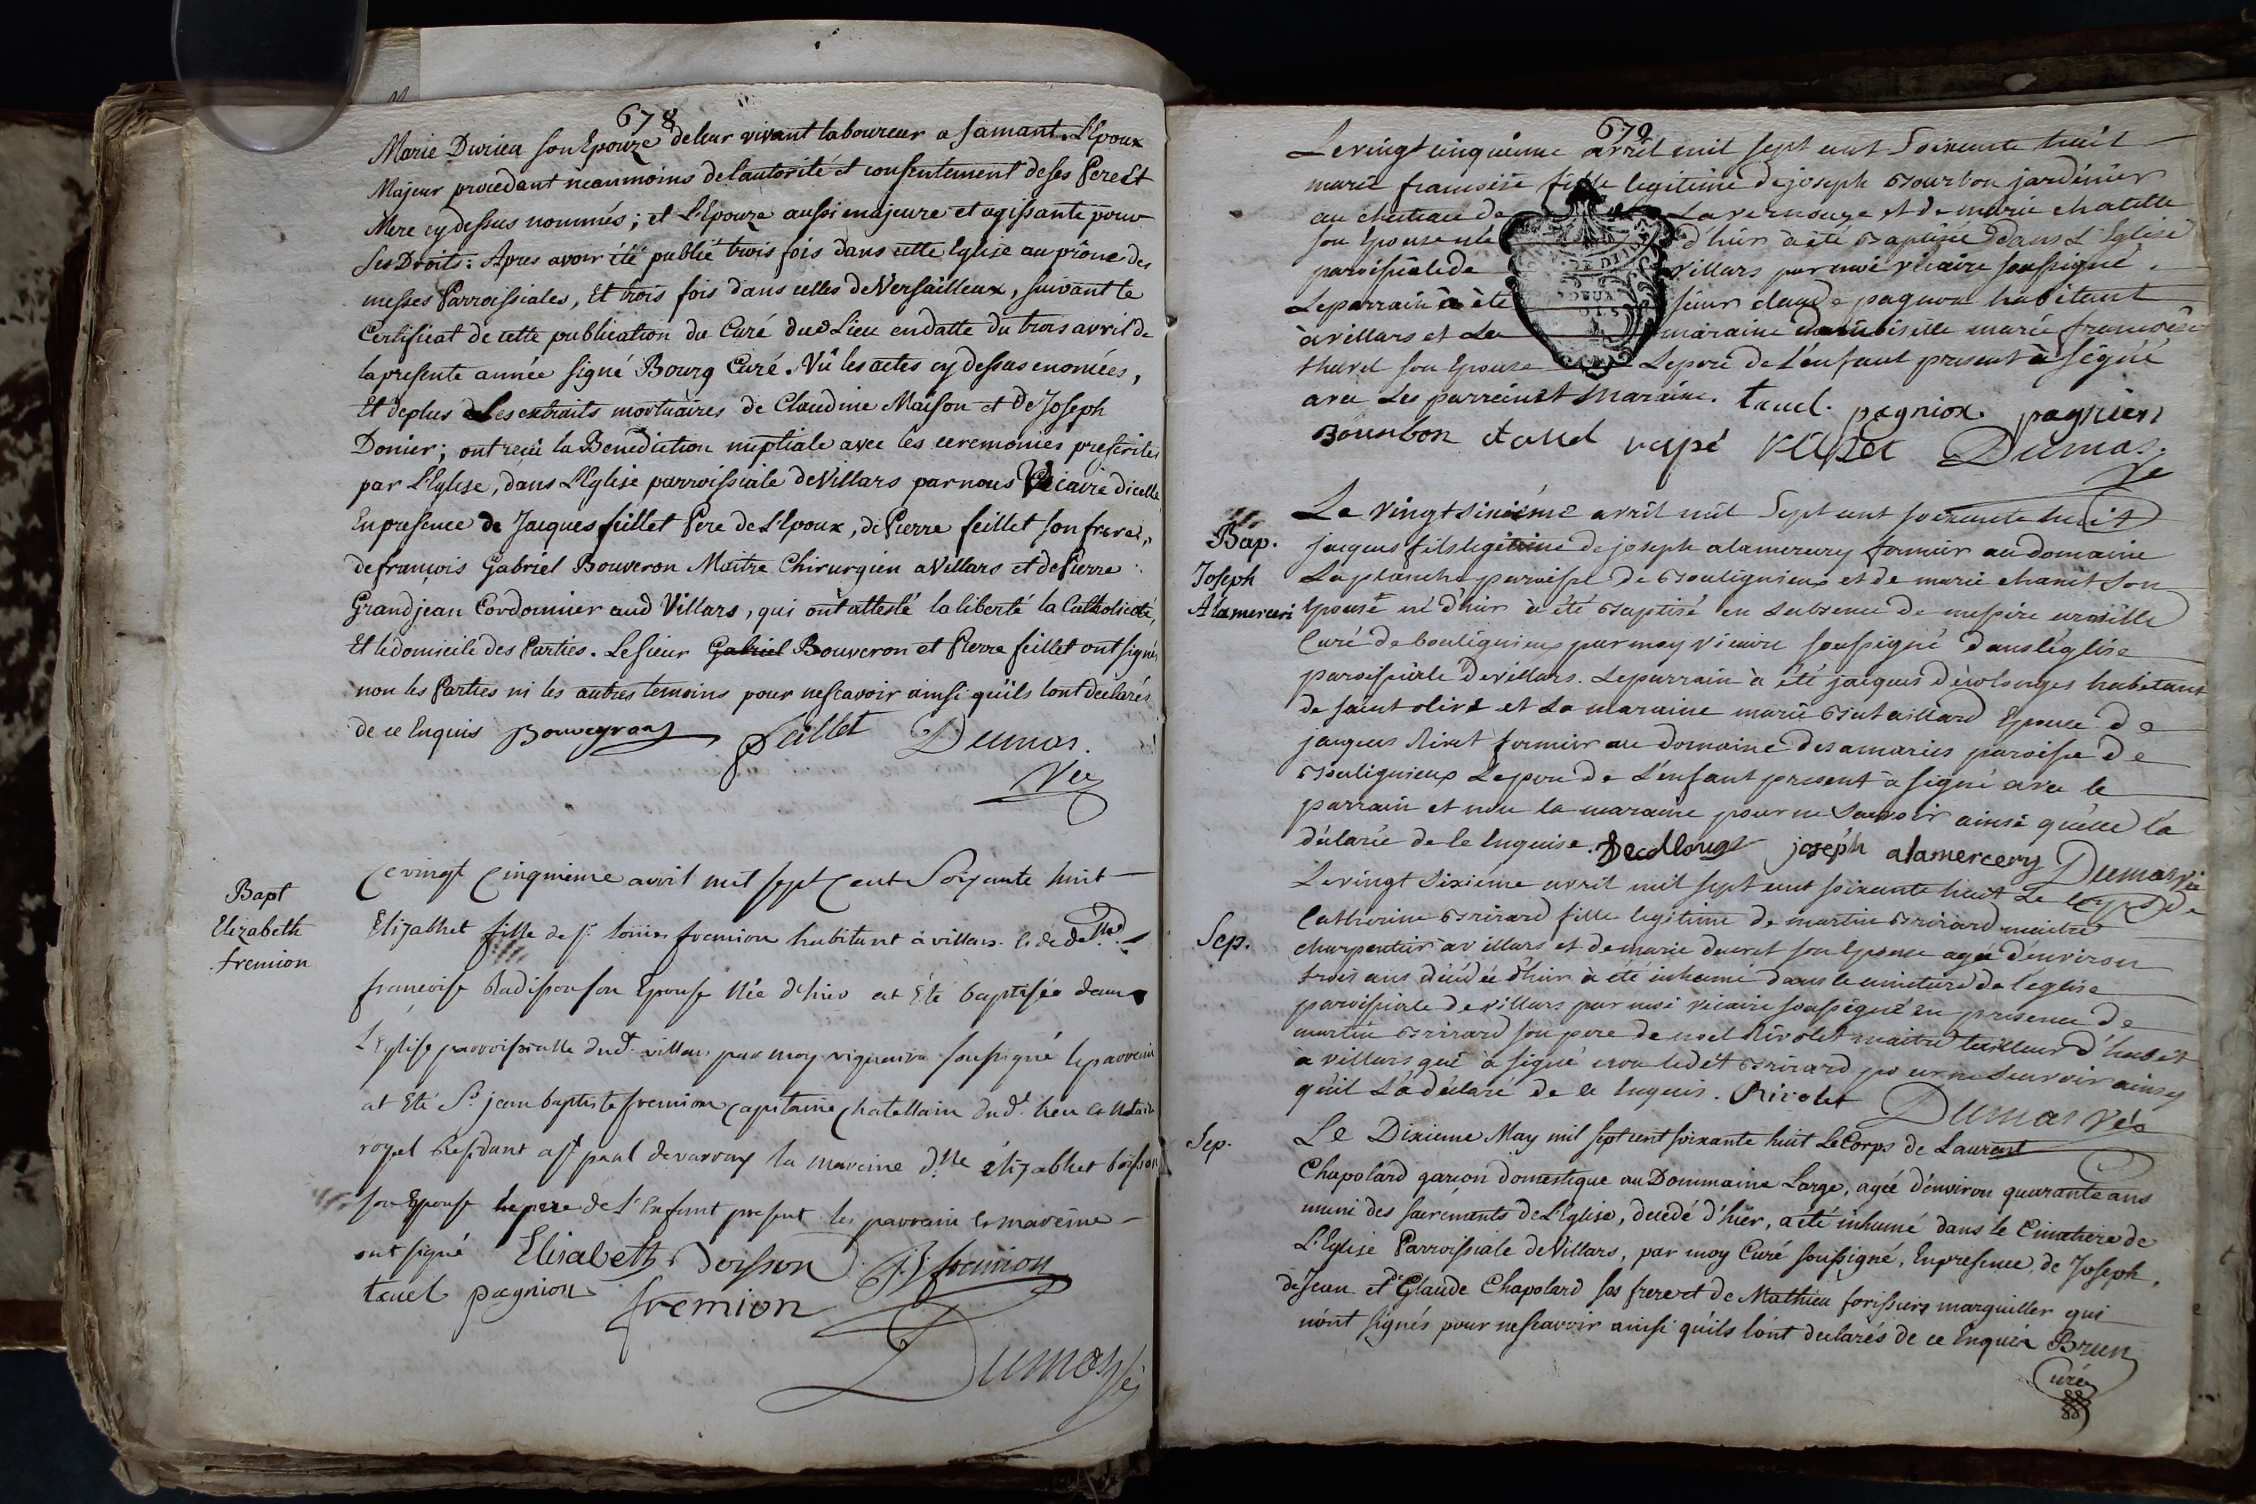 678
Marie Durieu son Epouze de leur vivant laboureur a Samant. L'Epoux
Majeur procedant neanmoins de l'autorité et consentement de ses Pere Et
Mere cy dessus nommés; et L'Epouze aussi majeure et agissante pour
ses Droits: Apres avoir été publié trois fois dans cette Eglise au prône des
messes Parroissiales, Et trois fois dans celles de Versailleux, suivant le
Certificat de cette publication du Curé dud Lieu en datte du trois avril de
la presente année signé Bourg Curé. Vû les actes cy dessus enoncées,
Et de plus Les extraits mortuaires de Claudine Maison et De Joseph
Donier; ont reçu la Benediction nuptiale avec les ceremonies prescrites
par L'Eglise, dans L'Eglise parroissiale de Villars par nous Vicaire d'icelle
En presence de Jacques feillet Pere de L'Epoux, de Pierre feillet son frere,
de françois Gabriel Bouveron Maitre Chirurgien a Villars et de Pierre
Grandjean Cordonnier aud Villars, qui ont attesté la liberté la Catholicité,
Et le domicile des Parties. Le sieur Gabriel Bouveron et Pierre feillet ont signé
non les Parties ni les autres temoins pour ne scavoir ainsi qu'ils l'ont declarés
de ce Enquis Bouveyron feillet Dumas.
Vic
Bapt
Elizabeth
fremion
Ce vingt Cinquieme avril mil sept Cent Soixante huit
Elizabhet fille de sr louis fremion habitant à villars et de dlle
francoise Badisson son Epouse Née d'hier at Eté baptisée dans
L'Eglise parroissialle dudt villars par moy viquaire soussigné le parrein
at Eté Sr jean baptiste fremion Capitaine Chatellain dudt lieu et Notaire
royal Residant a st paul de varax la mareine dlle élizabhet boisson
son Epouse le pere de l'Enfant present les parrain et mareine
ont signé Elisabeth Boisson fremion
tauel pagnion fremion
Dumas Vic
679
Le vingt cinquieme avril mil sept cent Soixante huit
marie francoise fille legitime de joseph Bourbon jardinier
au chateau de La vernouze et de marie chatelle
son Epouse née d'hier à été Baptisée dans L'Eglise
paroissiale de villars par moi vicaire soussigné.
Le parrain à ète sieur claude pagnon habitant
à villars et La maraine damoiselle marie francoise
son Epouse Le pere de L'enfant present à signé
avec Les parrein et Maraine. tauel. pagnion pagnion
Bourbon Dumas
Vic
Bap.
Joseph
Alamerceri
Le vingt sixiéme avril mil Sept cent soixante huit
jacques fils legitime de joseph alamercery fermier au domaine
La planche paroisse de Bouligneux et de marie chanet son
Epouse né d'hier à été Baptisé en L'absence de messire
Curé de bouligneux par moy vicaire soussigné dans l'église
paroissiale de villars. Le parrain à été jacques habitant
de saint olive et La maraine marie Butaillard Epouse de
jacques Rivet fermier au domaine des amaries paroisse de
Bouligneux Le pere de L'enfant present à signé avec le
parrain et non la maraine pour ne Savoir ainsi qu'elle l'a
déclarée de le Enquise. joséph alamercery Dumas Vic
Sep.
Le vingt sixieme avril mil sept cent soixante huit Le corps de
Catherine Brirard fille legitime de martin Brirard maitre
charpentier a villars et de marie ducret son Epouse agée d'environ
trois ans décédée d'hier à été inhumé dans le cimetiere de l'eglise
paroissiale de villars par moi vicaire soussigné en presence de
martin Brirard son pere de noel Rivolet maitre tailleur d'habit
a villars qui à signé non ledit Brirard pour ne Scavoir ainsy
qu'il L'a déclaré de ce Enquis. Rivolet Dumas Vic
Sep.
Le Dixieme May mil sept cent soixante huit Le Corps de Laurent
Chapolard garçon domestique au Dommaine Large, agée d'environ quarante ans
muni des sacrements de L'Eglise, decedé d'hier, a été inhumé dans le Cimetiere de
L'Eglise Parroissiale de Villars, par moy Curé soussigné, En presence, de Joseph,
de Jean et Claude Chapolard ses frere et de Mathieu forissiers marguiller qui
n'ont signés pour ne scavoir ainsi qu'ils l'ont declarés de ce Enquis Brun
Curé